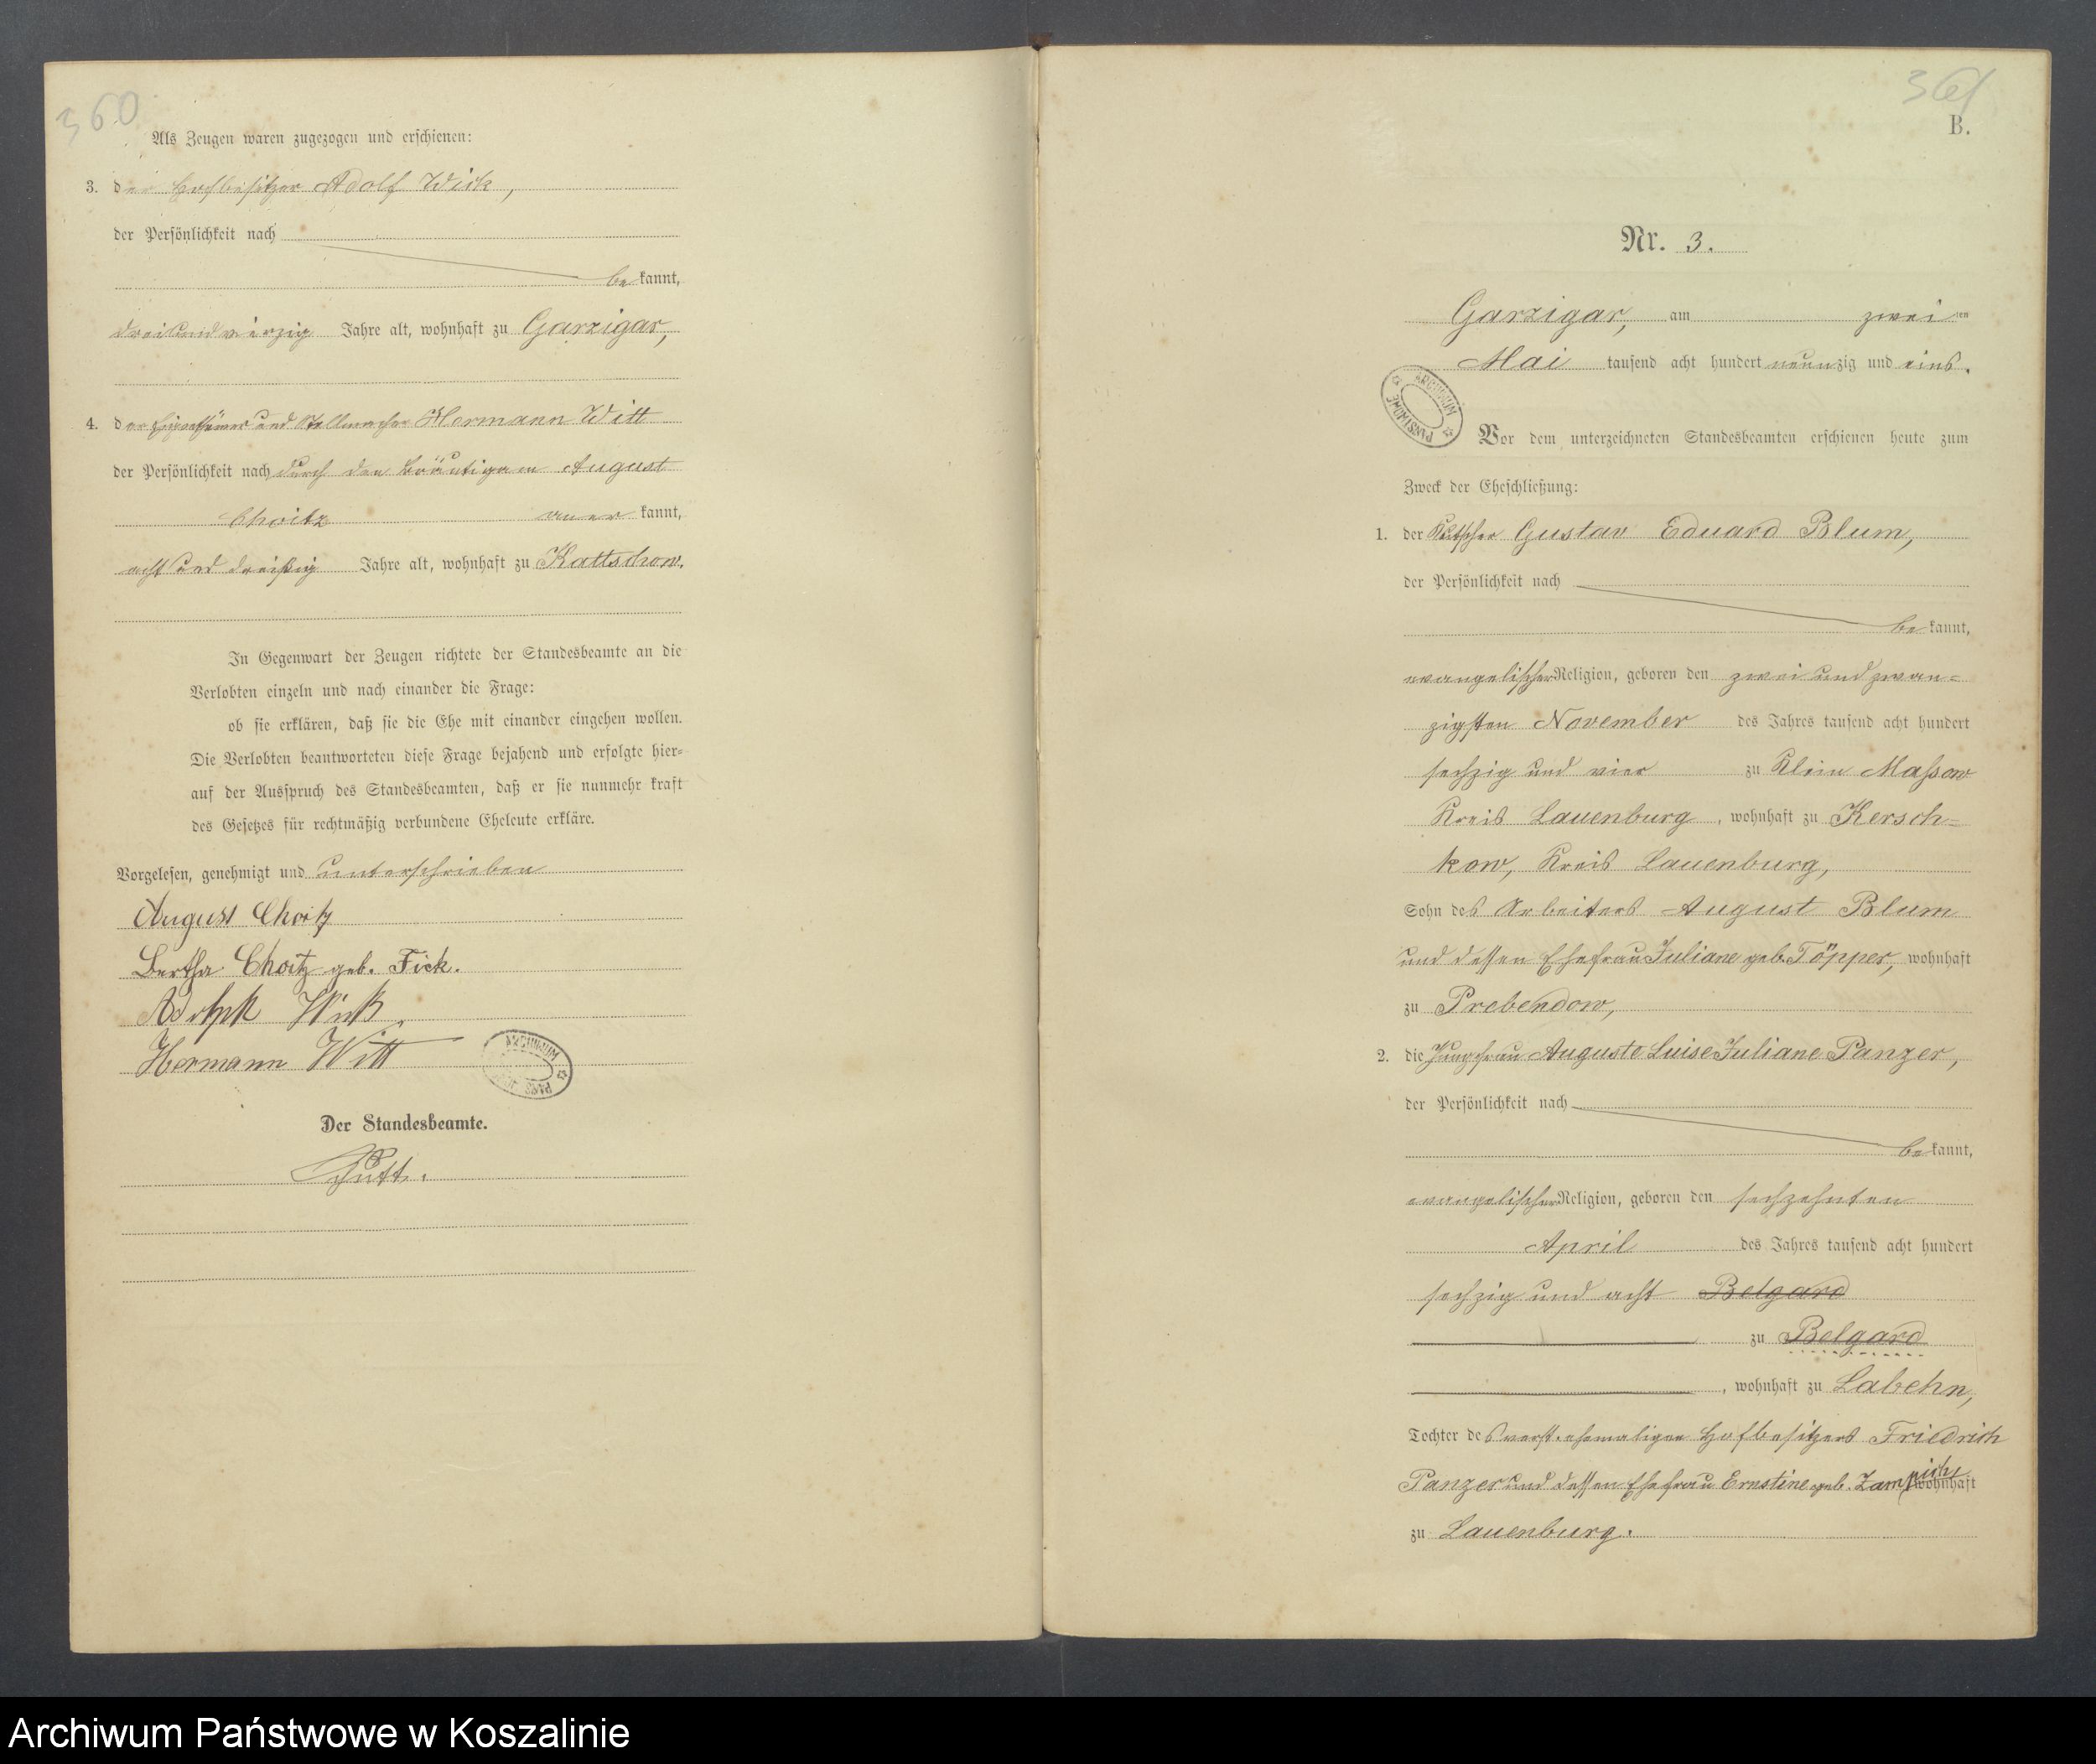 360
Als Zeugen waren zugezogen und erschienen:
3. der Hofbesitzer Adolf Wick,
der Persönlichkeit nach
bekannt,
dreiundvierzig Jahre alt, wohnhaft zu Garzigar,
4. der Eigenthümer und Stellmacher Hermann Witt
der Persönlichkeit nach durch den Bräutigam August
Choitz anerkannt,
acht und dreißig Jahre alt, wohnhaft zu Kattschow.
In Gegenwart der Zeugen richtete der Standesbeamte an die
Verlobten einzeln und nach einander die Frage:
ob sie erklären, daß sie die Ehe mit einander eingehen wollen.
Die Verlobten beantworteten diese Frage bejahend und erfolgte hier-
auf der Ausspruch des Standesbeamten, daß er sie nunmehr kraft
des Gesetzes für rechtmäßig verbundene Eheleute erkläre.
Vorgelesen, genehmigt und unterschrieben
August Choitz
Bertha Choitz geb. Fick.
Adolph Wick
Hermann Witt
ARCHIWUM
Der Standesbeamte.
361
B.
Nr. 3.
Garzigar, am zweiten
Mai tausend acht hundert neunzig und eins.
ARCHIWUM PAŃSTWOWE
Vor dem unterzeichneten Standesbeamten erschienen heute zum
Zweck der Eheschließung:
1. der Kutscher Gustav Eduard Blum,
der Persönlichkeit nach
bekannt,
evangelischer Religion, geboren den zwei und zwan-
zigsten November des Jahres tausend acht hundert
sechzig und vier zu Klein Massow
Kreis Lauenburg, wohnhaft zu Kersch-
kow, Kreis Lauenburg,
Sohn des Arbeiters August Blum
und dessen Ehefrau Juliane geb. Töpper, wohnhaft
zu Prebendow,
2. die Jungfrau Auguste Luise Juliane Panzer,
der Persönlichkeit nach
bekannt,
evangelischer Religion, geboren den sechzehnten
April des Jahres tausend acht hundert
sechzig und acht Belgard
zu Belgard
, wohnhaft zu Labehn,
Tochter des verst. ehemaligen Hofbesitzers Friedrich
Panzer und dessen Ehefrau Ernstine geb. wohnhaft
zu Lauenburg.
Archiwum Państwowe w Koszalinie